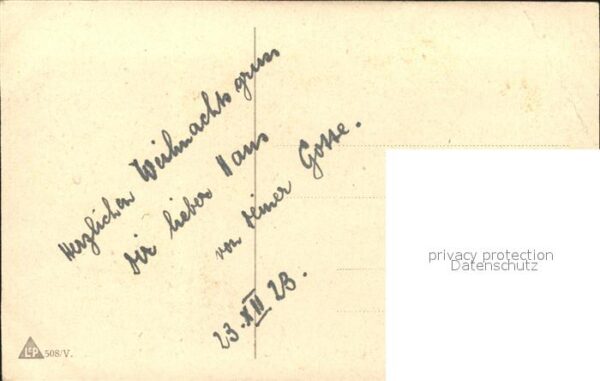 Herzlichen Weihnachtsgruss
Dir lieber Hans
von deiner Gotte.
23. XII 23.
L&P 508/V.
privacy protection
Datenschutz